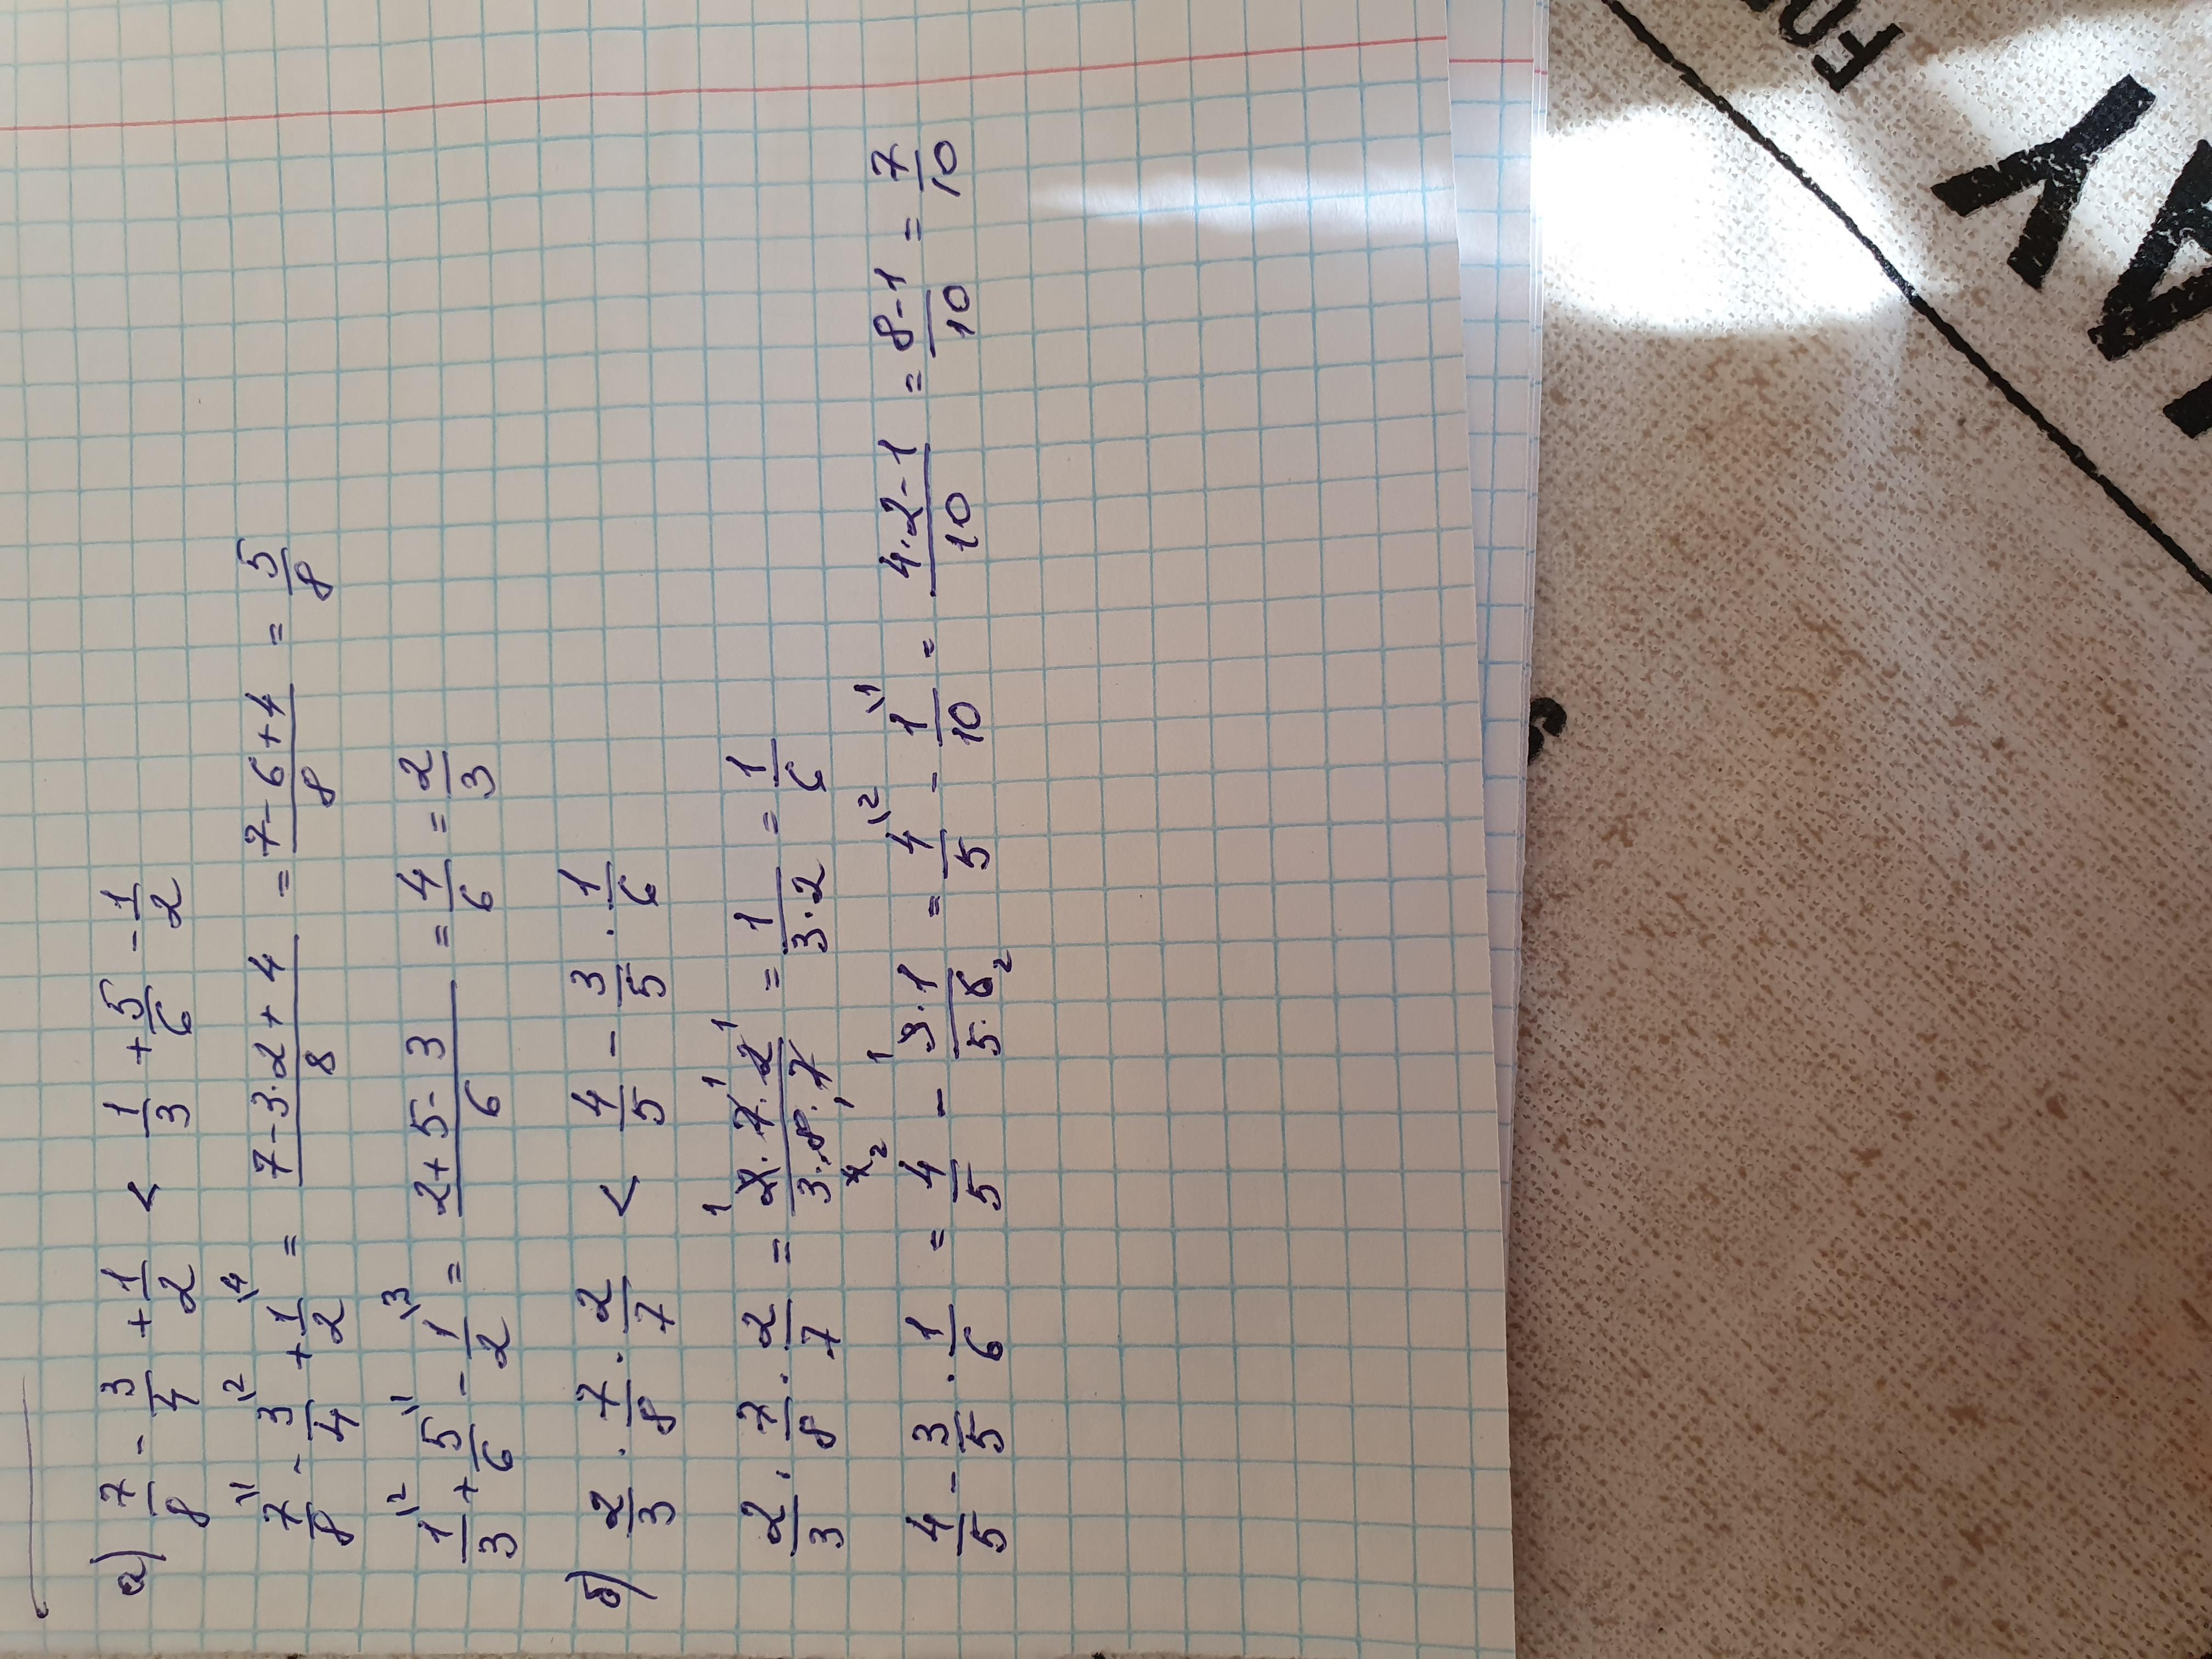 а) 7/8 - 3/4 + 1/2 < 1/3 + 5/6 - 1/2
7/8\1 - 3/4\2 + 1/2\4 = (7-3·2+4)/8 = (7-6+4)/8 = 5/8
1/3\2 + 5/6\1 - 1/2\3 = (2+5-3)/6 = 4/6 = 2/3
б) 2/3 · 7/8 · 2/7 < 4/5 - 3/5 · 1/6
2/3 · 7/8 · 2/7 = (2·7·2)/(3·8·7) = 1/(3·2) = 1/6
4/5 - 3/5 · 1/6 = 4/5 - (3·1)/(5·6) = 4/5\2 - 1/10\1 = (4·2-1)/10 = (8-1)/10 = 7/10